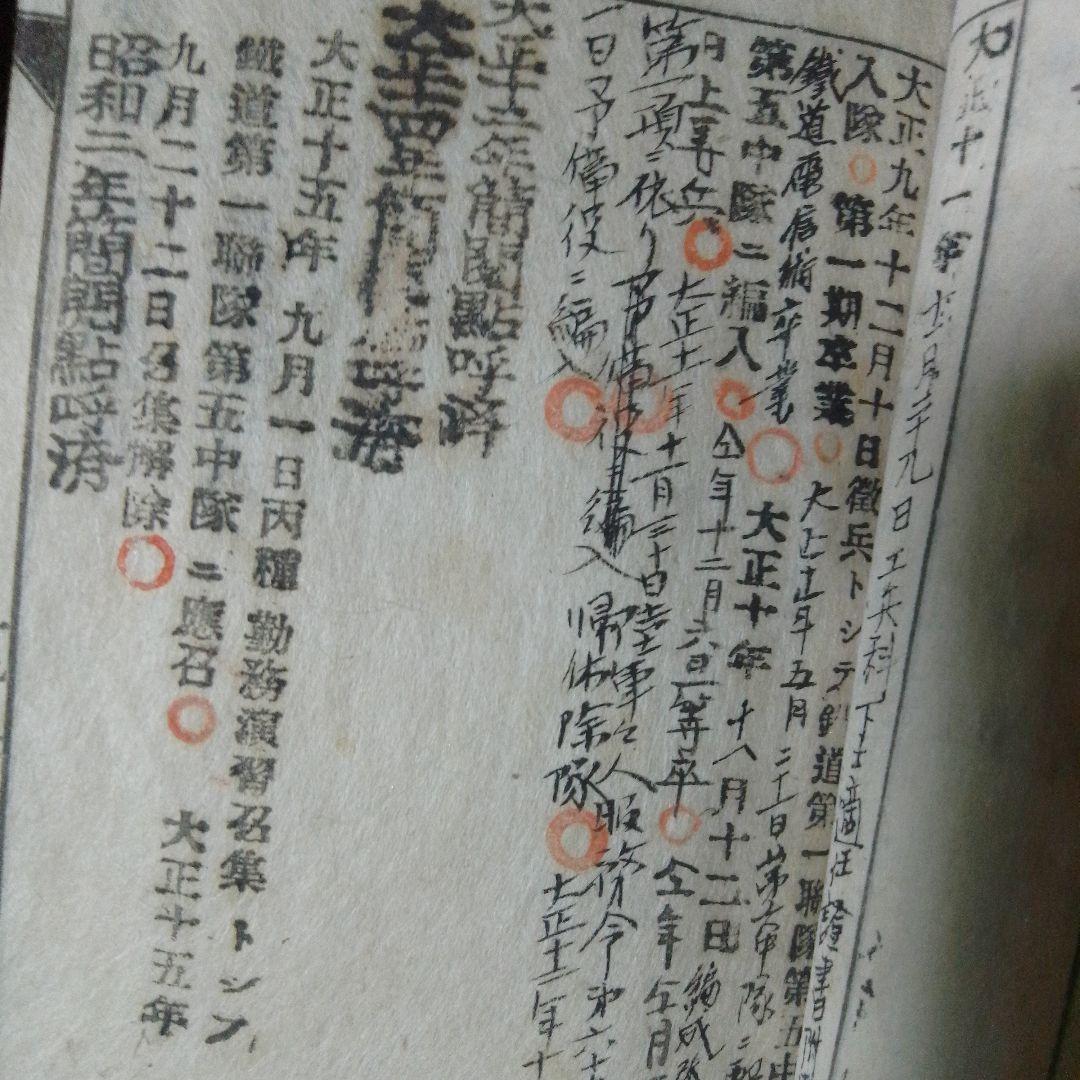 大正十一年十一月二十九日工兵科下士適任證書附
大正九年十二月十日徵兵トシテ鐵道第一聯隊第五中
入隊 第一期卒業 大正十年五月二十一日第六中隊ニ
鐵道電信術卒業 大正十年十八月十二日編成
第五中隊ニ編入 仝年十二月六日一等卒 仝年仝月
月上等兵 大正十一年十一月三十日陸軍々人服務令第六十
第一項ニ依リ予備役ニ編入 帰休除隊 大正十二年十
一日予備役ニ編入
大正十三年簡閱點呼濟
大正四年簡閱點呼濟
大正十五年九月一日丙種勤務演習召集トシテ
鐵道第一聯隊第五中隊ニ應召 大正十五年
九月二十二日召集解除
昭和二年簡閱點呼濟